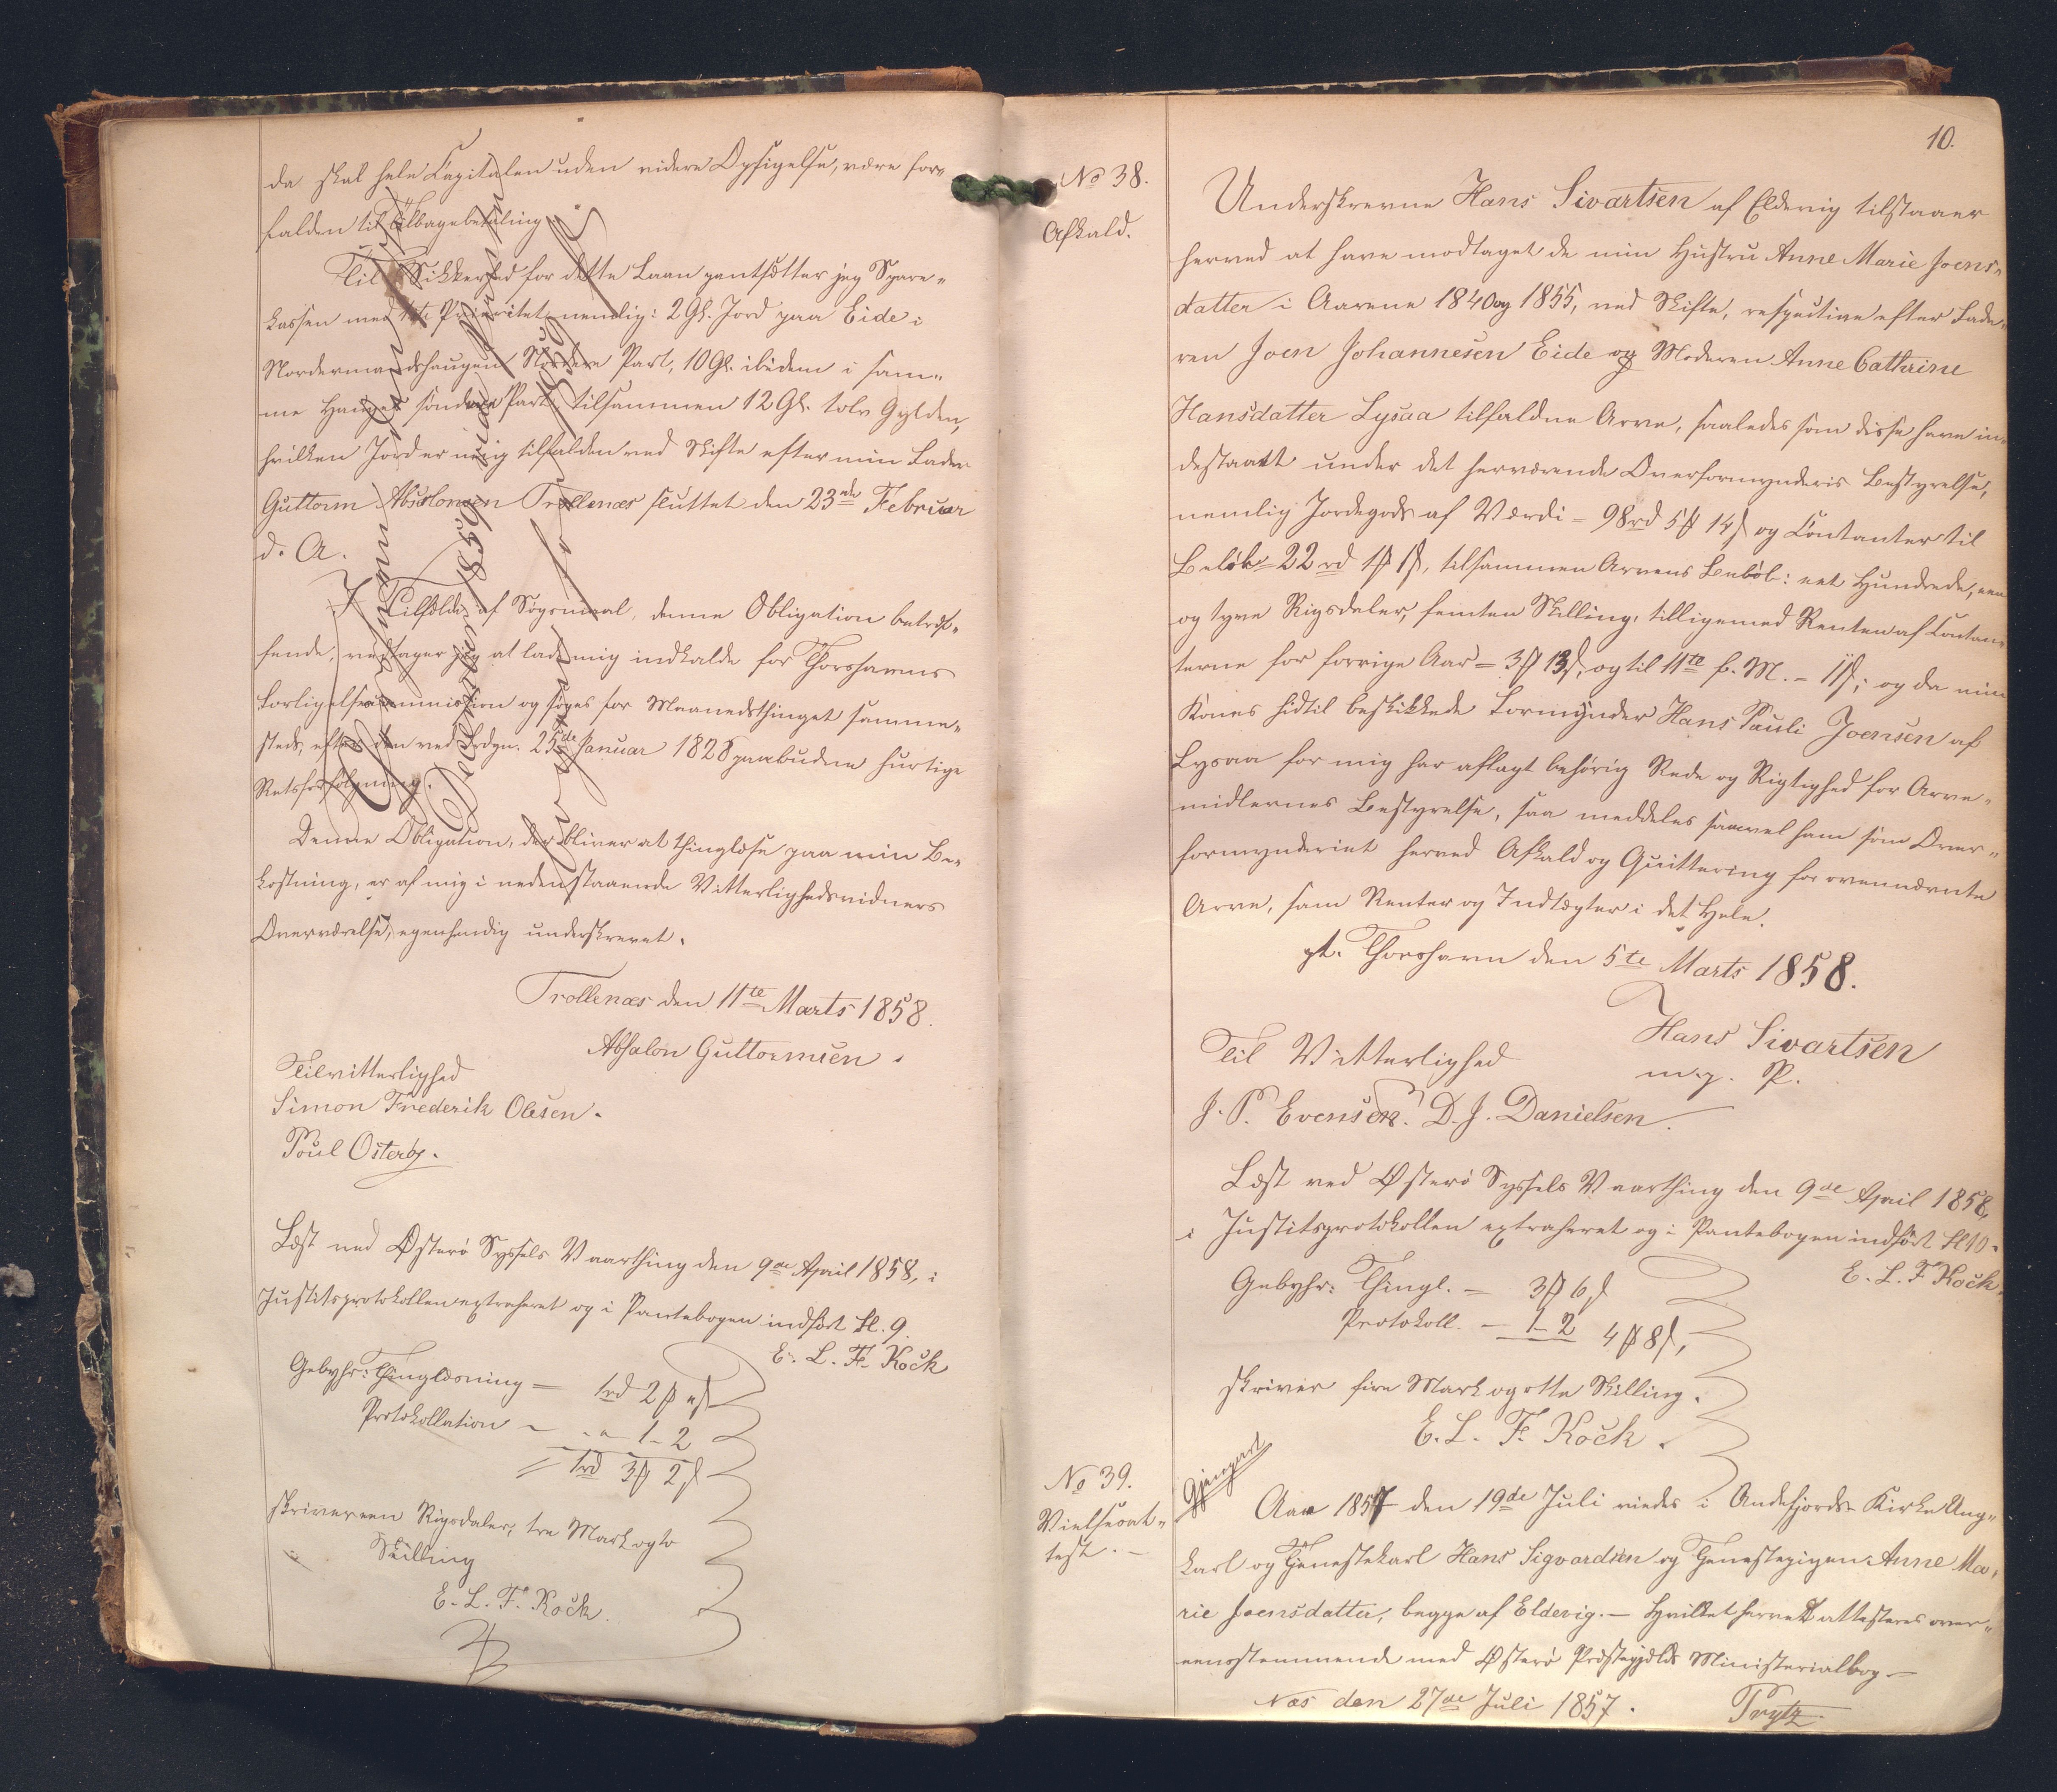 da skal hele Capitalen uden videre Opsigelse, være for-
falden til Tilbagebetaling.
Til Sikkerhed for dette Laan pantsætter jeg Spare-
kassen med 1ste Prioritet, nemlig: 2 Gl. Jord paa Eide i
Nordermandshaugen Nordre Part, 10 Gl. ibidem i sam-
me Hauges söndre Part, tilsammen 12 Gl. tolv Gylden,
hvilken Jord er mig tilfalden ved Skifte efter min Fader
Guttorm Absolonsen Trollenæs sluttet den 23de Februar
d. A.
I Tilfælde af Søgsmaal, denne Obligation betræf-
fende, vedtager jeg at lade mig indkalde for Thorshavns
Forligelsescommission og søges for Maanedsthinget samme-
steds, efter den ved Frdgn. 25de Januar 1828 paabudne hurtige
Retsforfølgning.
Denne Obligation, der bliver at thinglæse paa min Be-
kostning, er af mig i nedenstaaende Vitterlighedsvidners
Overværelse, egenhændig underskrevet.
Trollenæs den 11te Marts 1858.
Absalon Guttormsen.
Til Vitterlighed
Simon Frederik Olesen.
Poul Osterby.
Læst ved Østerö Syssels Vaarthing den 9de April 1858, i
Justitsprotokollen extraheret og i Pantebogen indført fl. 9.
E. L. F. Kock
Gebyhr: Thinglæsning = 1rd 2 ß
Protokollation - " - 1 - 2
= 1rd 3 2 ß
skriver een Rigsdaler, tre Mark og to
Skilling
E. L. F. Kock.
10.
No 38.
Afkald.
Underskrevne Hans Sivartsen af Eldevig tilstaaer
herved at have modtaget de min Hustru Anne Marie Joens-
datter i Aarene 1840 og 1855, ved Skifte, respective efter Fade-
ren Joen Johannesen Eide og Moderen Anne Cathrine
Hansdatter Lysaa tilfaldne Arve, saaledes som disse have in-
destaaet under det herværende Overformynderis Bestyrelse,
nemlig Jordegods af Værdi = 98rd 5 14ß og Contanter til
Beløb = 22rd 1 1ß, tilsammen Arvens Beløb: eet Hundrede, een
og tyve Rigsdaler, femten Skilling, tilligemed Renten af Contan-
terne for forrige Aar = 3 13ß, og til 11te f. M. = 11ß; og da min
Kones hidtil beskikkede Formynder Hans Pauli Joensen af
Lysaa for mig har aflagt behørig Rede og Rigtighed for Arve-
midlernes Bestyrelse, saa meddeles saavel ham som Over-
formynderiet herved Afkald og Quittering for ovennævnte
Arve, sam Renter og Indtægter i det Hele.
pt. Thorshavn den 5te Marts 1858.
Hans Sivartsen
m. p. P.
Til Vitterlighed
J. P. Evensen. D. J. Danielsen.
Læst ved Østerö Syssels Vaarthing den 9de April 1858,
i Justitsprotokollen extraheret og i Pantebogen indført fl 10.
E. L. F. Kock.
Gebyhr: Thingl. = 3 6ß
Protokoll. - 1 - 2 4 8ß,
skriver fire Mark og otte Skilling.
E. L. F. Kock.
No 39.
Vielsesat-
test.
Gjenpart
Aar 1857 den 19de Juli viedes i Andefjords Kirke Ung-
karl og Tjenestekarl Hans Sigvardsen og Tjenestepigen Anne Ma-
rie Joensdatter, begge af Eldevig. - Hvilket herved attesteres over-
eensstemmende med Østerö Præstegjælds Ministerialbog.
Næs den 27de Juli 1857.
Prytz.